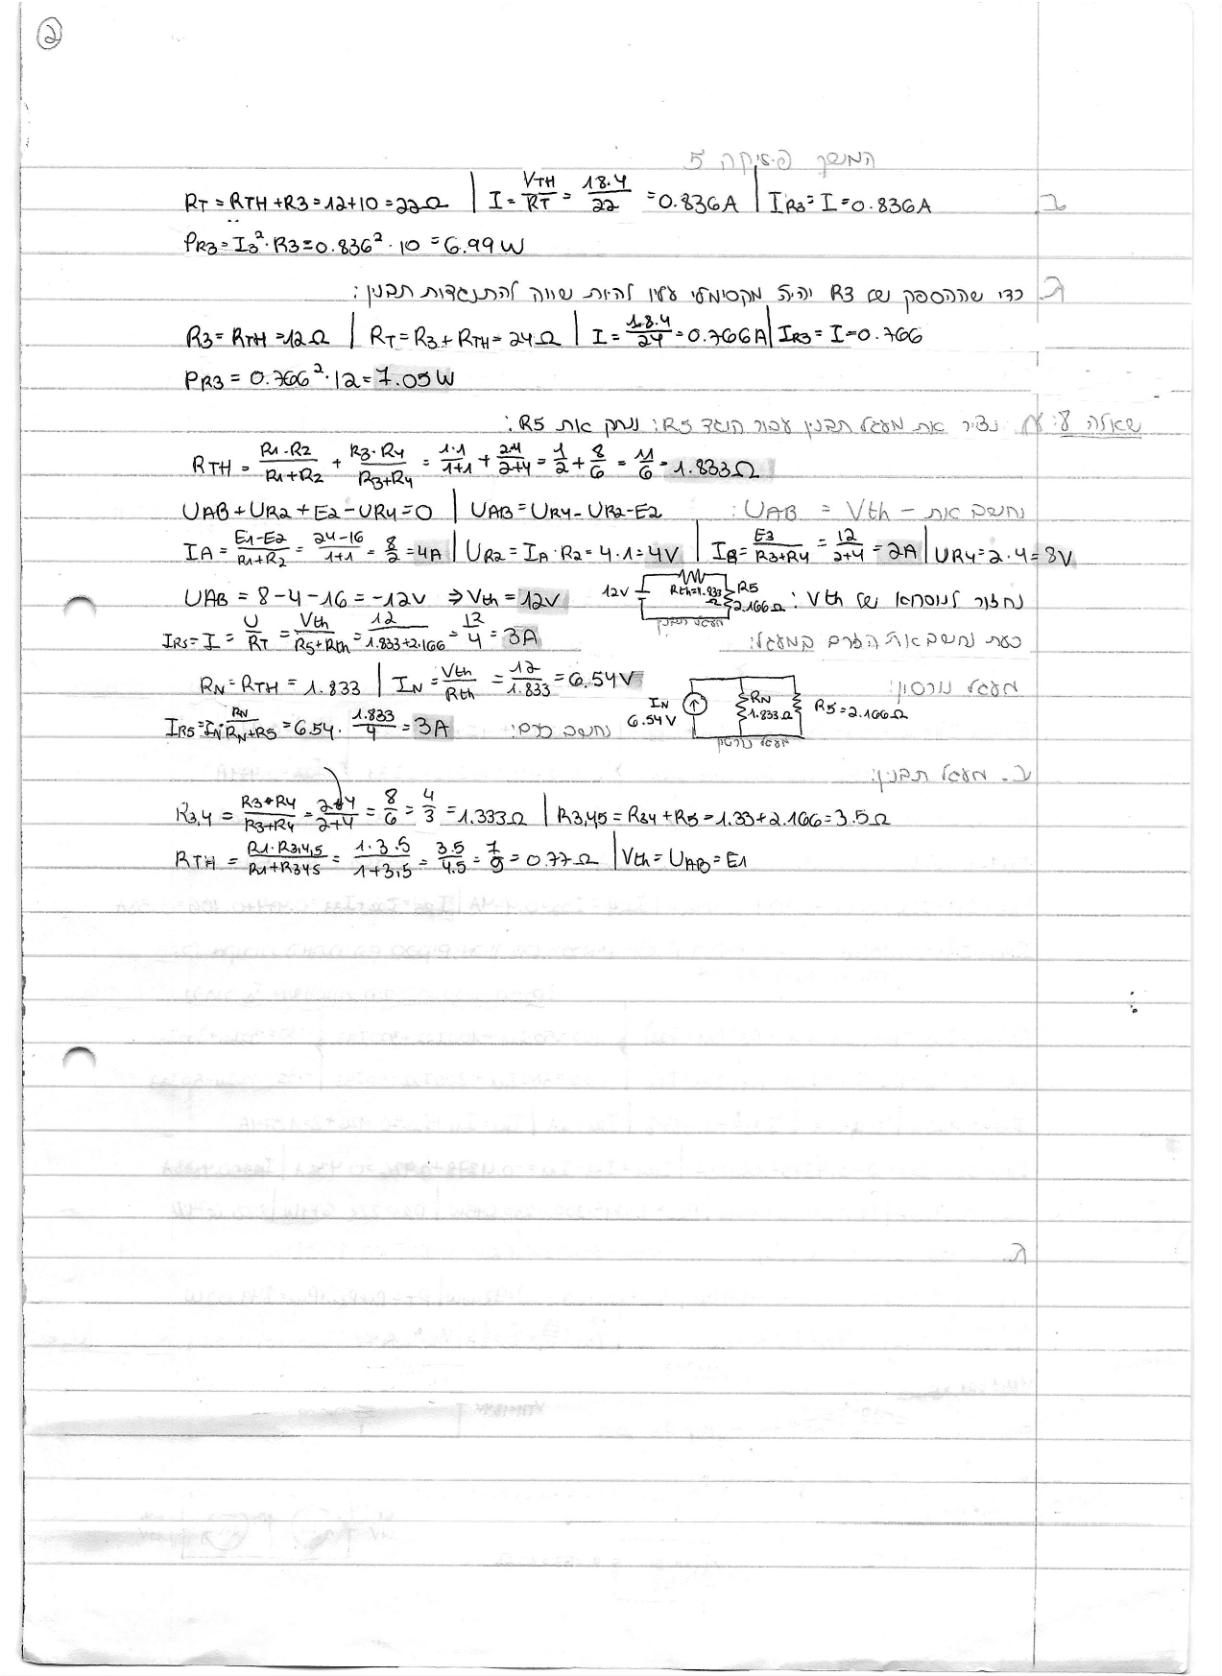 2
המשך פיזיקה 5
ב. RT = RTH + R3 = 12+10 = 22Ω | I = VTH/RT = 18.4/22 = 0.836A | IR3 = I = 0.836A
PR3 = I3² · R3 = 0.836² · 10 = 6.99W
ג. כדי שההספק של R3 יהיה מקסימלי עליו להיות שווה להתנגדות תבנין:
R3 = RTH = 12Ω | RT = R3 + RTH = 24Ω | I = 18.4/24 = 0.766A | IR3 = I = 0.766
PR3 = 0.766² · 12 = 7.05W
שאלה 8: נצייר את מעגל תבנין עבור הנגד R5: ננתק את R5:
RTH = R1·R2/R1+R2 + R3·R4/R3+R4 = 1·1/1+1 + 2·4/2+4 = 1/2 + 8/6 = 11/6 = 1.833Ω
UAB + UR2 + E2 - UR4 = 0 | UAB = UR4 - UR2 - E2 נחשב את - UAB = Vth:
IA = E1-E2/R1+R2 = 24-16/1+1 = 8/2 = 4A | UR2 = IA · R2 = 4·1 = 4V | IB = E3/R3+R4 = 12/2+4 = 2A | UR4 = 2·4 = 8V
UAB = 8-4-16 = -12V ⇒ Vth = 12V נחזור לנוסחא של Vth:
12V Rth=1.833Ω R5 2.166Ω
מעגל תבנין
IR5 = I = U/RT = Vth/R5+Rth = 12/1.833+2.166 = 12/4 = 3A כעת נחשב את הזרם במעגל:
RN = RTH = 1.833 | IN = Vth/Rth = 12/1.833 = 6.54V מעגל נורטון:
IN 6.54V RN 1.833Ω R5=2.166Ω
מעגל נורטון
IR5 = IN · RN/RN+R5 = 6.54 · 1.833/4 = 3A נחשב זרם:
ב. מעגל תבנין:
R3,4 = R3·R4/R3+R4 = 2·4/2+4 = 8/6 = 4/3 = 1.333Ω | R3,45 = R34 + R5 = 1.33+2.166 = 3.5Ω
RTH = R1·R3,4,5/R1+R345 = 1·3.5/1+3,5 = 3.5/4.5 = 7/9 = 0.77Ω | Vth = UAB = E1
ג.